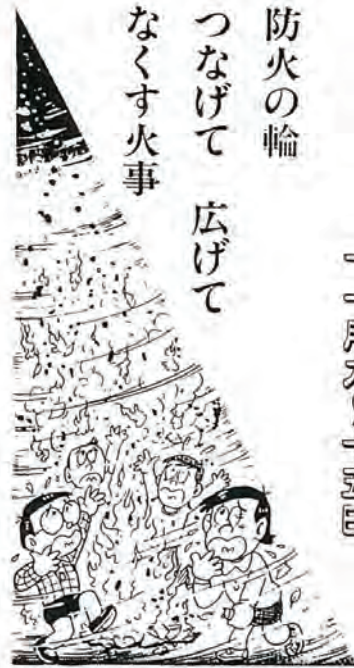 防火の輪
つなげて 広げて
なくす火事